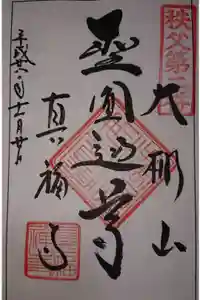 秩父第二番
大棚山
聖圓通尊
真福寺
平成廿年十一月廿日